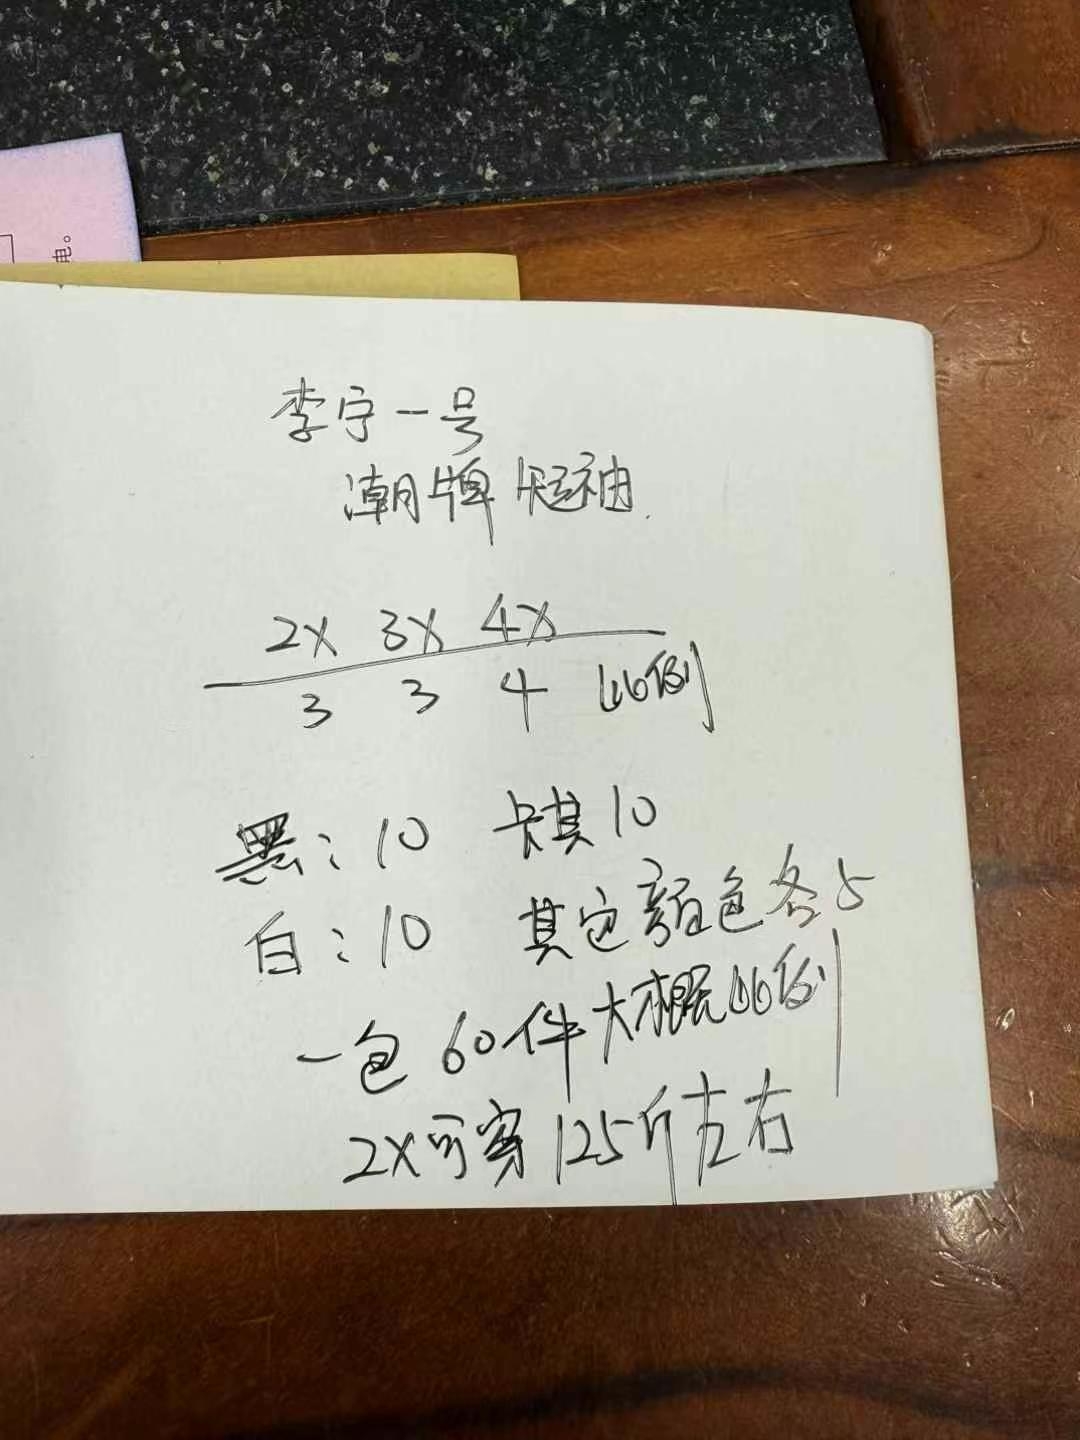 电。
李宁一号
潮牌短袖.
2X 3X 4X
3 3 4 比例
黑:10 卡其10
白:10 其它颜色各5
一包60件大概比例
2X可穿125斤左右